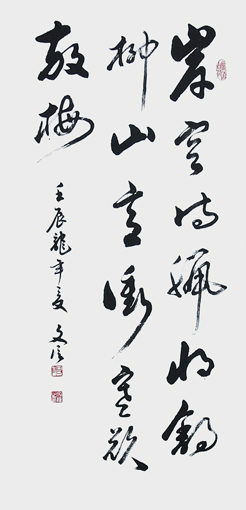 岸容待臘將舒
柳山意衝寒欲
放梅
壬辰龍年夏 文